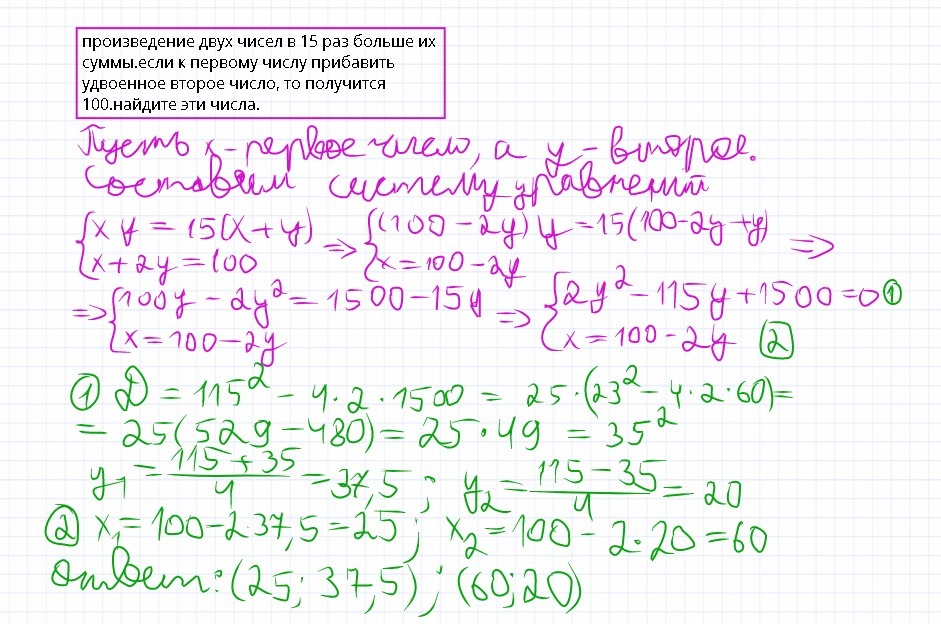 произведение двух чисел в 15 раз больше их
суммы.если к первому числу прибавить
удвоенное второе число, то получится
100.найдите эти числа.
Пусть x - первое число, а y - второе.
Составим систему уравнений
{xy = 15(x+y) => {(100-2y)y = 15(100-2y+y) =>
{x+2y=100 {x=100-2y
=> {100y - 2y² = 1500-15y => {2y² - 115y + 1500 = 0 ①
{x=100-2y {x = 100 - 2y ②
① D = 115² - 4·2·1500 = 25·(23² - 4·2·60) =
= 25(529-480) = 25·49 = 35²
y₁ = (115+35)/4 = 37,5 ; y₂ = (115-35)/4 = 20
② x₁ = 100-2·37,5 = 25 ; x₂ = 100 - 2·20 = 60
ответ: (25; 37,5) ; (60; 20)